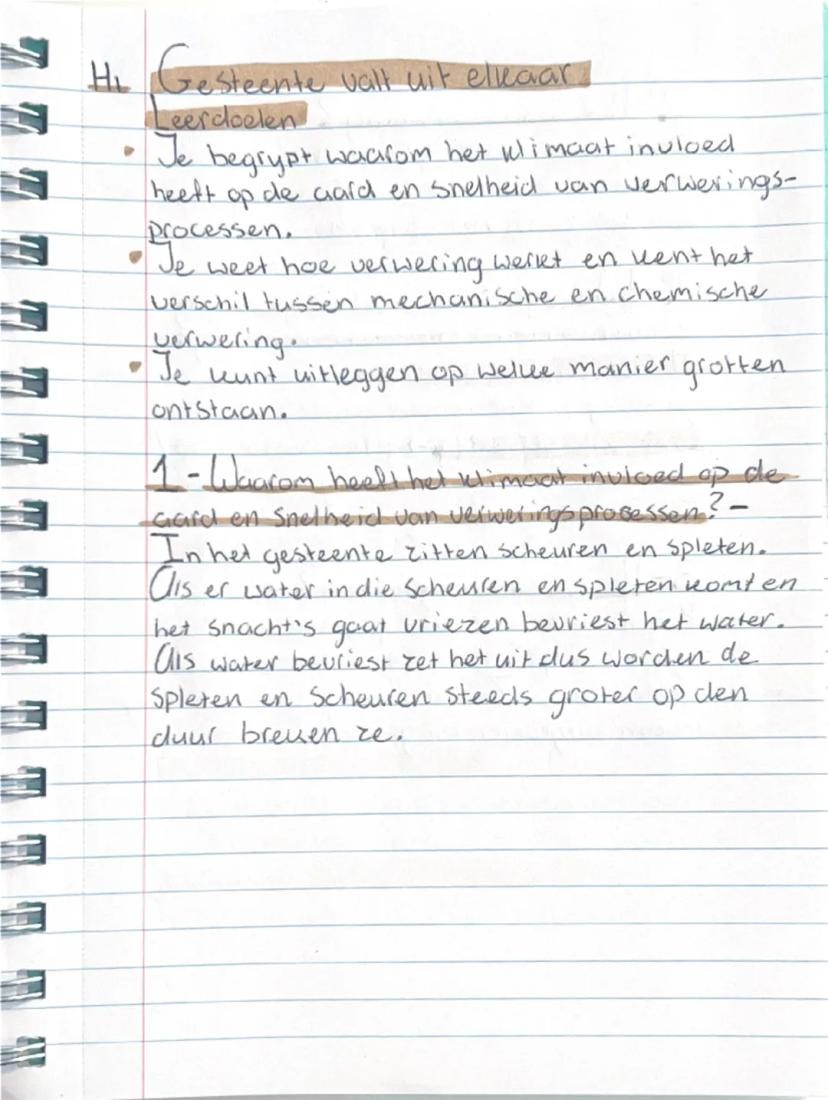 H1 Gesteente valt uit elkaar
Leerdoelen
• Je begrypt waarom het klimaat invloed
heeft op de aard en snelheid van verwerings-
processen.
• Je weet hoe verwering werkt en kent het
verschil tussen mechanische en chemische
verwering.
• Je kunt uitleggen op welke manier grotten
ontstaan.
1 - Waarom heeft het klimaat invloed op de
aard en snelheid van verweringsprosessen? -
In het gesteente zitten scheuren en spleten.
Als er water in die scheuren en spleten komt en
het snacht's gaat vriezen bevriest het water.
Als water bevriest zet het uit dus worden de
spleten en scheuren steeds groter op den
duur breken ze.